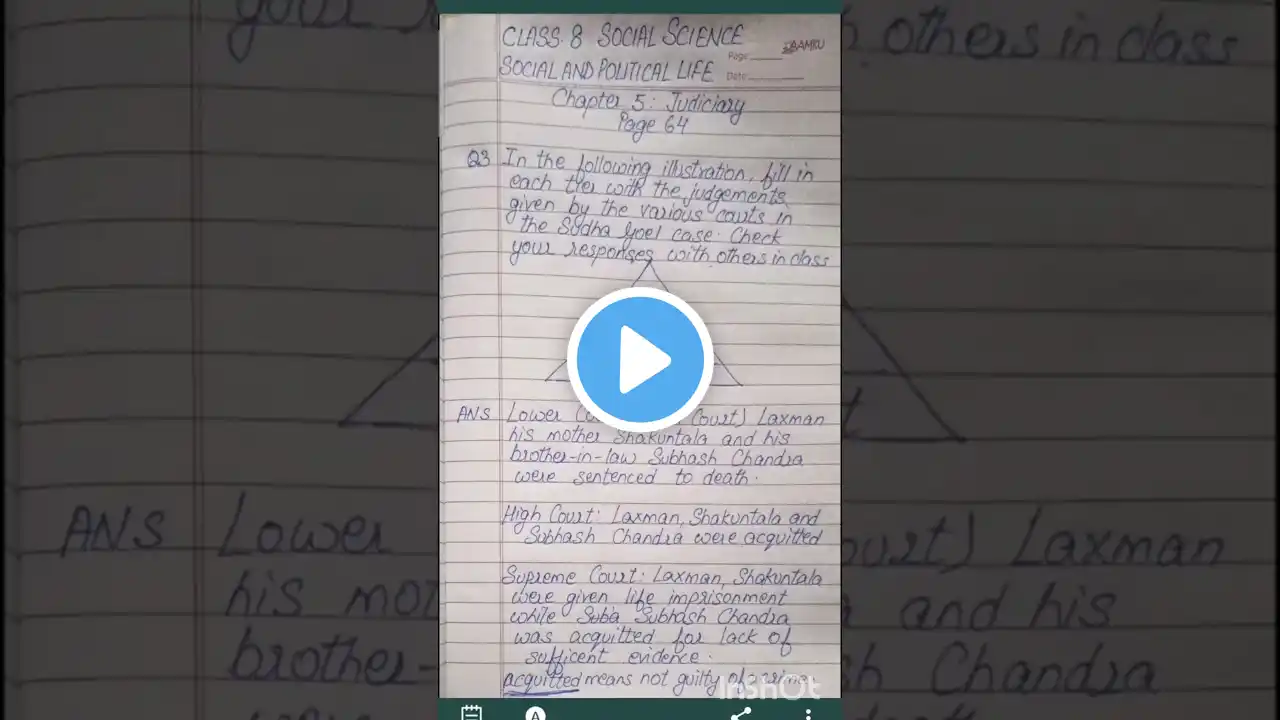 CLASS 8 SOCIAL SCIENCE
Page JAAMKU
SOCIAL AND POLITICAL LIFE
Date
Chapter 5: Judiciary
Page 64
Q3 In the following illustration, fill in
each tier with the judgements
given by the various courts in
the Sudha Goel case. Check
your responses with others in class
ANS Lower Court) Laxman
his mother Shakuntala and his
brother-in-law Subhash Chandra
were sentenced to death.
High Court: Laxman, Shakuntala and
Subhash Chandra were acquitted
Supreme Court: Laxman, Shakuntala
were given life imprisonment
while Suba Subhash Chandra
was acquitted for lack of
sufficent evidence.
acquitted means not guilty of crime.
InShOt
your others in class
ANS Lower Court) Laxman
his and his
brother- Chandra